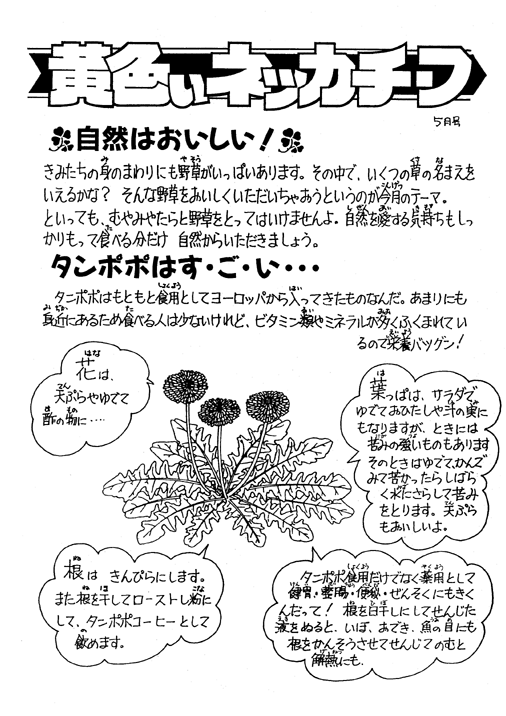 黄色いネッカチーフ
5月号
自然はおいしい！
きみたちの身のまわりにも野草がいっぱいあります。その中で、いくつの草の名まえを
いえるかな？ そんな野草をおいしくいただいちゃおうというのが今月のテーマ。
といっても、むやみやたらと野草をとってはいけませんよ。自然を愛する気持ちもしっ
かりもって食べる分だけ 自然からいただきましょう。
タンポポはす・ご・い・・・
タンポポはもともと食用としてヨーロッパから入ってきたものなんだ。あまりにも
身近にあるため食べる人は少ないけれど、ビタミン類やミネラルが多くふくまれてい
るので栄養バツグン！
花は、
天ぷらやゆでて
酢の物に・・・・
葉っぱは、サラダで
ゆでておひたしや汁の実に
もなりますが、ときには
苦みの強いものもあります
そのときはゆでて、かんで
みて苦かったらしばら
く水にさらして苦み
をとります。天ぷら
もおいしいよ。
根は きんぴらにします。
また根を干してローストし粉に
して、タンポポコーヒーとして
飲めます。
タンポポ食用だけでなく薬用として
健胃・整腸・便秘・ぜんそくにもきく
んだって！ 根を日干しにしてせんじた
液をぬると、いぼ、あざ、魚の目にも
根をかんそうさせてせんじてのむと
解熱にも、